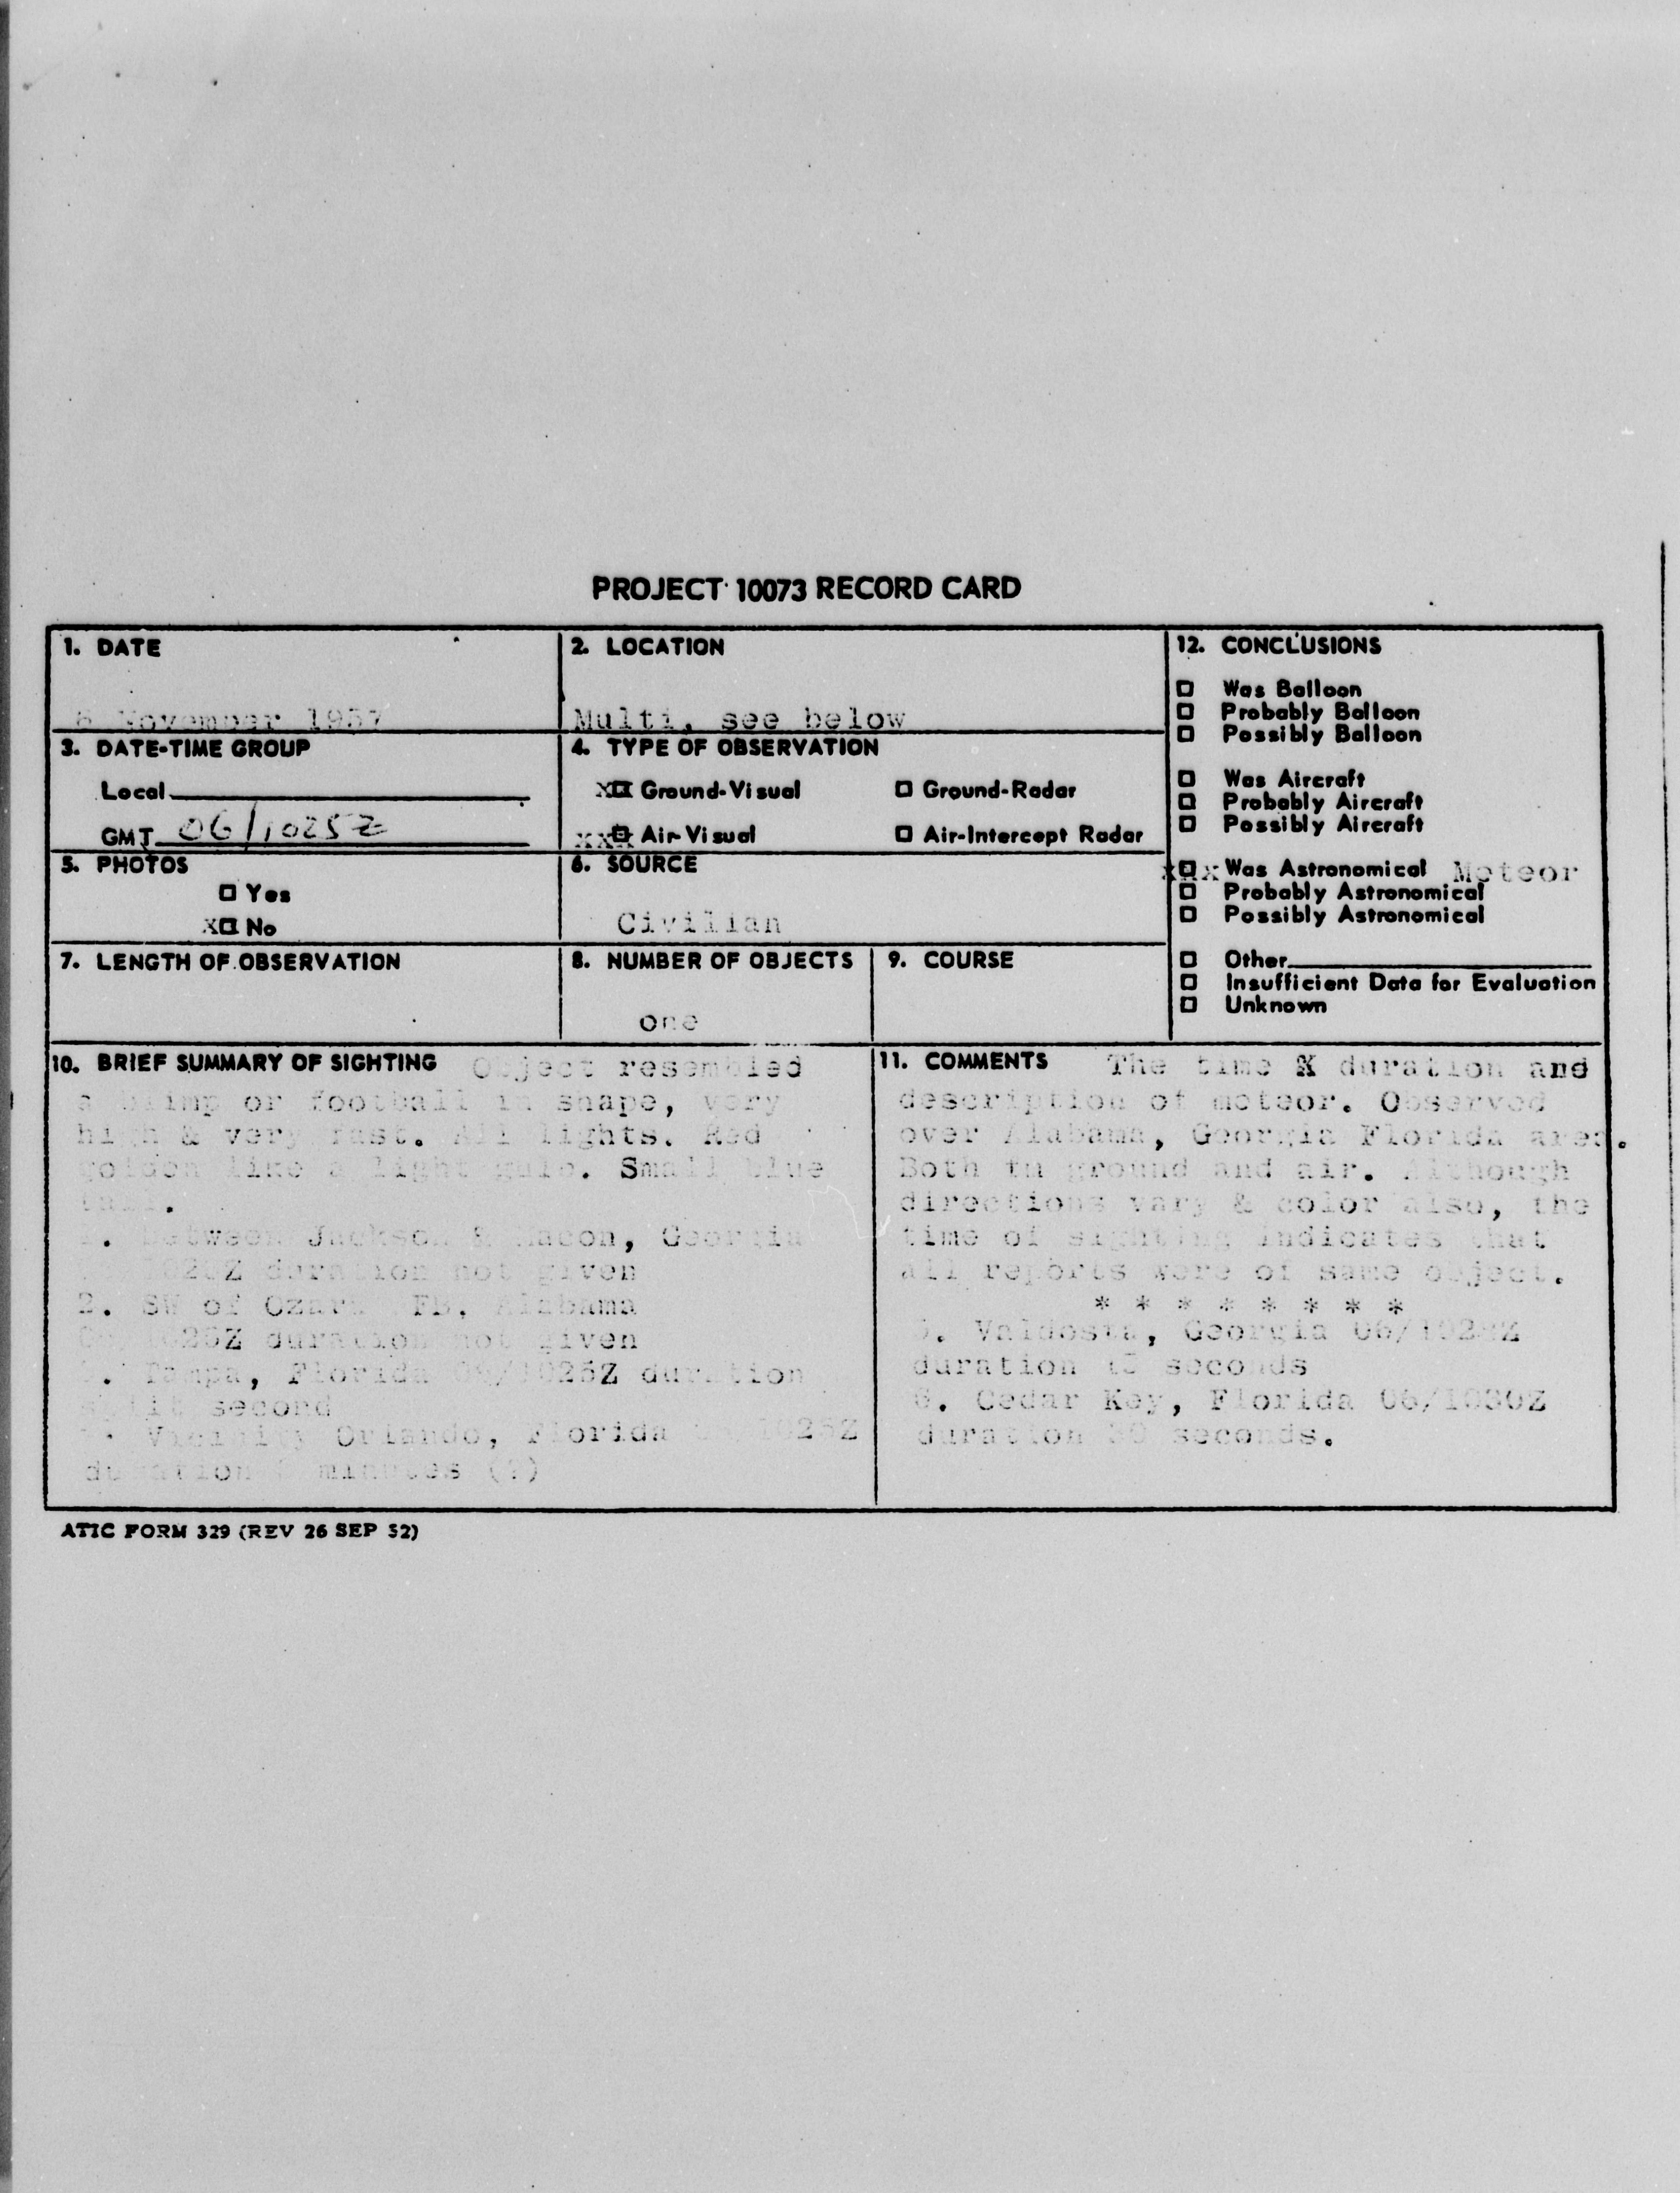 PROJECT 10073 RECORD CARD
1. DATE
6 November 1957
2. LOCATION
Multi, see below
3. DATE-TIME GROUP
Local
GMT 06/1025Z
4. TYPE OF OBSERVATION
X Ground-Visual
Ground-Radar
XXX Air-Visual
Air-Intercept Radar
5. PHOTOS
Yes
X No
6. SOURCE
Civilian
7. LENGTH OF OBSERVATION
8. NUMBER OF OBJECTS
one
9. COURSE
12. CONCLUSIONS
Was Balloon
Probably Balloon
Possibly Balloon
Was Aircraft
Probably Aircraft
Possibly Aircraft
xxx Was Astronomical Meteor
Probably Astronomical
Possibly Astronomical
Other
Insufficient Data for Evaluation
Unknown
10. BRIEF SUMMARY OF SIGHTING Object resembled
a blimp or football in shape, very
high & very fast. All lights. Red
golden like a light Small blue
tail.
between Jackson & Macon, Georgia
duration not given
2. SW of Alabama
duration not given
Tampa, Florida 06/1025Z duration
split second
Vicinity Orlando, Florida
duration minutes (?)
11. COMMENTS The time & duration and
description of meteor. Observed
over Alabama, Georgia Florida area.
Both in ground and air. Although
directions vary & color also, the
time of sighting indicates that
all reports were of same object.
* * * * * * * *
5. Valdosta, Georgia
duration 15 seconds
6. Cedar Key, Florida 06/1030Z
duration 30 seconds.
ATIC FORM 329 (REV 26 SEP 52)